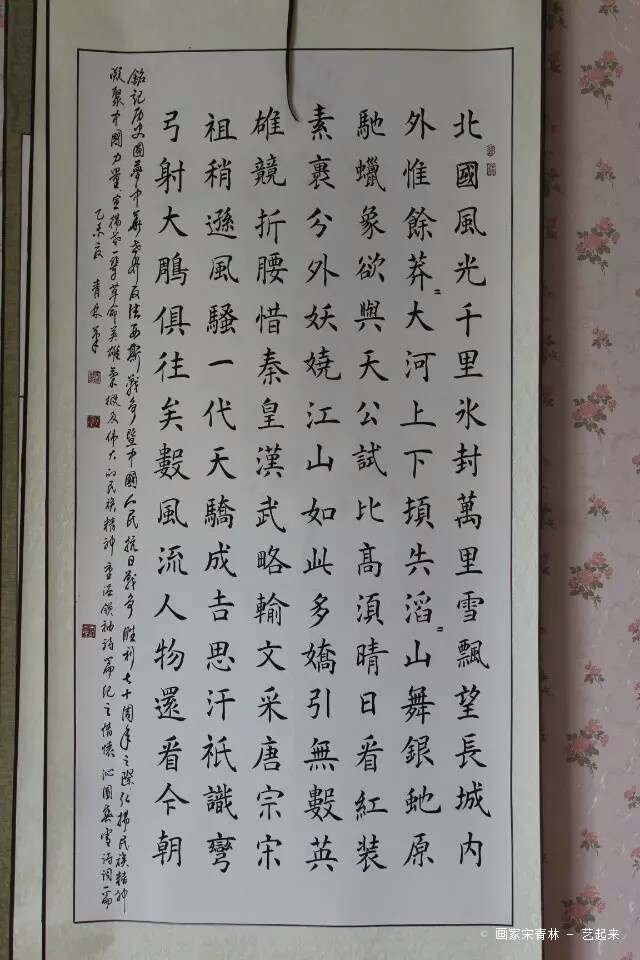 北國風光千里氷封萬里雪飄望長城内
外惟餘莽〻大河上下頓失滔〻山舞銀虵原
馳蠟象欲與天公試比高須晴日看紅装
素裹分外妖嬈江山如此多嬌引無數英
雄競折腰惜秦皇漢武略輸文采唐宗宋
祖稍遜風騷一代天驕成吉思汗祇識彎
弓射大鵰俱往矣數風流人物還看今朝
銘記历史圆夢中華世界反法西斯戰争暨中國人民抗日戰争胜利七十周年之際弘揚民族精神
凝聚中國力量宣揚老一辈革命英雄氣概及伟大的民族精神重温领袖诗篇纪之惜懷沁園春雪诗词一篇
乙未夏 青林筆
© 画家宋青林 - 艺起来